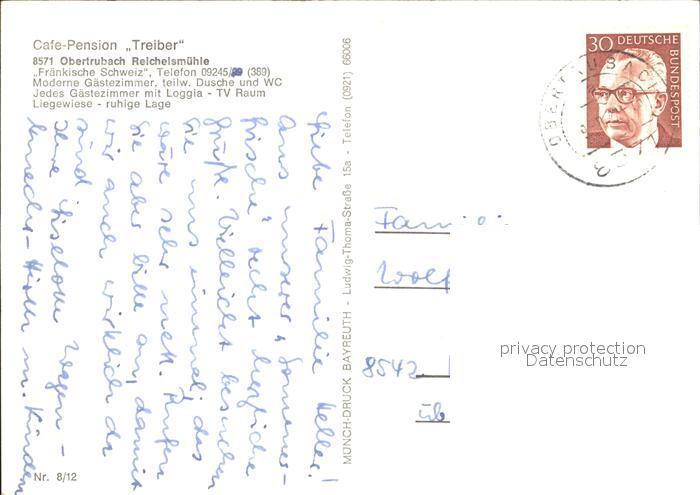 Cafe-Pension „Treiber"
8571 Obertrubach Reichelsmühle
„Fränkische Schweiz", Telefon 09245/ (389)
Moderne Gästezimmer, teilw. Dusche und WC
Jedes Gästezimmer mit Loggia - TV Raum
Liegewiese - ruhige Lage
Liebe Familie Heller!
Aus unserer „Sommer-
frische" recht herzliche
Grüße. Vielleicht besuchen
Sie uns einmal, das
wäre sehr nett. Rufen
Sie aber bitte an, damit
wir auch wirklich da
sind
Ihre Liselotte
m. Kindern
Nr. 8/12
MÜNCH-DRUCK BAYREUTH - Ludwig-Thoma-Straße 15a - Telefon (0921) 66006
30 DEUTSCHE BUNDESPOST
Fam
Wolf
8542
üb
privacy protection
Datenschutz